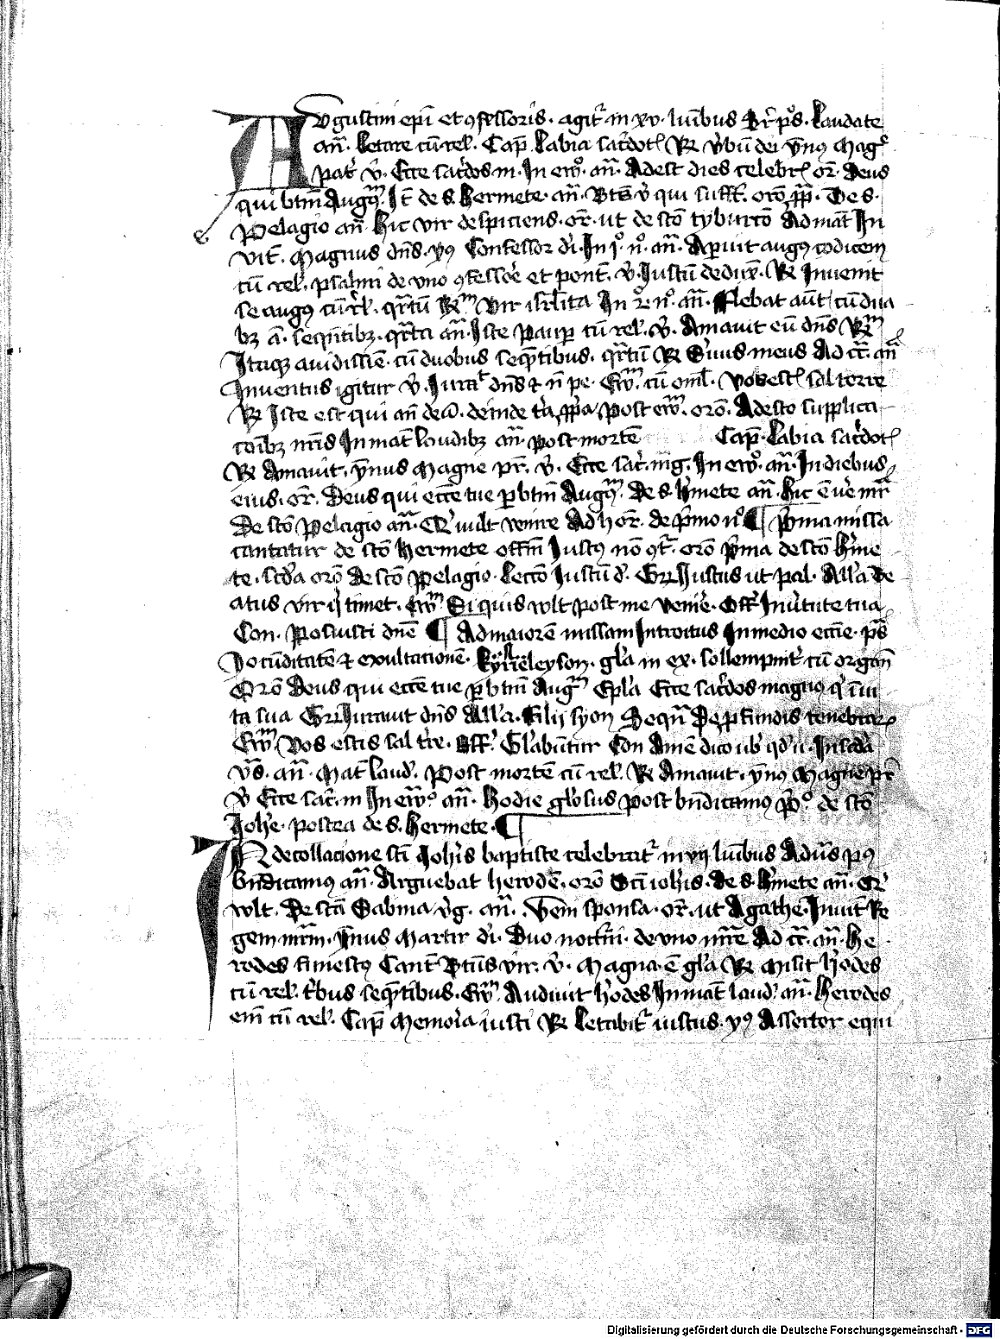 Augustini epi et ꝯfessoris. agit᷑ in xv. luībus Br̄ ps. Laudate
an̄. Letare cū rel̄. Cap̄. Labia sac̄dot R̄ v̄bū dei ȳnus Mag
pat̄ v̄. Ecce sac̄dos m. In ew̄. an̄. Adest dies celebr̄ or̄. Deus
qui btm̄ Augꝯ. It̄ de s. Hermete. an̄. Bt̄s v̄ qui suff̄. orō pp̄. De s.
Pelagio an̄. Hic vir despiciens. or̄. ut de sc̄o tyburcō Ad mat̄ In
vit̄. Magnus dn̄s. yꝯ Confessor di. In j. n̄. an̄. Aperuit augꝯ codicem
cū rel̄. psalmi de vno ꝯfessore et pont̄. v̄. Iustū dedux̄. R̄ Invenit
se augꝯ cū rl̄. qr̄tū R̄ Vir isrl̄ita In 2 n̄. an̄. Flebat aūt cū dua
bꝫ a. seqn̄tibꝫ. qr̄ta an̄. Iste pauꝑ cū rel̄. v̄. Amavit eū dn̄s R̄
Itaqꝫ audissē. cū duobus seqn̄tibus. qr̄tū R̄ Ciuus meus Ad an̄
Inventus igitur v̄. Iurat dn̄s ⁊ n̄ pe. Ew̄. cū oml̄. Vos est sal terre
R̄ Iste est qui an̄ deū. deinde post ew̄. orō. Adesto supplica
coībꝫ nr̄is In mat̄ laudibꝫ an̄. post mortē Cap̄. Labia sac̄dot
R̄ Amavit. ȳnus Magne pr̄. v̄. Ecce sac̄. mḡ. In ew̄. an̄. In diebus
eius. or̄. Deus qui ecc̄e tue ꝑ btm̄ Augꝯ. De s. h̄mete an̄. hic ē vē mr̄
De sc̄o Pelagio an̄. Qui vult venire Ad hor̄. de p̄mo n̄ ¶ p̄ma missa
cantatur de sc̄o Hermete offm̄ Iustꝯ nō orō p̄ma de sc̄o h̄me
te. sc̄da orō de sc̄o Pelagio. Lecc̄o Iustū d̄. Gr̄ Iustus ut pal. All̄a Be
atus vir q̄ timet. Ew̄ Si quis wlt post me venir̄e. Off̄ In v̄tute tua
Con. Posuisti dn̄e ¶ Ad maiorē missam Introitus In medio ecc̄ie. ps̄
Iocūditatē ⁊ exultationē. Kyrieleyson. gl̄a in ex. sollempnit̄ cū organ̄
Orō Deus qui ecc̄e tue ꝑ btm̄ Augꝯ Epl̄a Ecce sac̄dos magnꝯ q̄ ī vi
ta sua Gr̄ Iurauit dn̄s All̄a. Filij syon Sequn̄ De ꝓfundis tenebrar
Ew̄ Vos estis sal tr̄e. Off̄. Gl̄abūtur Con Amē dico Insc̄da
vs̄. an̄. Mat̄ laud̄. Post mortē cū rel̄. R̄ Amauit. ȳnus Magne pr̄
v̄ Ecce sac̄. m In ew̄. an̄. Hodie gl̄osus post bn̄dicamꝯ de sc̄o
Ioh̄e. postea de s. Hermete. ¶
In decollacione sc̄i Ioh̄is baptiste celebrat᷑ in vij luībus Ad vs̄ pꝯ
bn̄dicamꝯ an̄. Arguebat herodē. orō Sc̄i ioh̄is. de s. h̄mete an̄. Qi
wlt. De sc̄a Sabina v̄g. an̄. Veni sponsa. or̄. ut Agathe. Inuit̄ Re
gem mr̄m. ȳnus Martir di. Duo noct̄ni. de vno mr̄e Ad an̄. he
rodes funestꝯ Cant̄ Btūs vir. v̄. Magna ē gl̄a R̄ Misit h̄odes
cū rel̄. t̄bus seqn̄tibus. Ew̄. Audiuit h̄odes In mat̄ laud̄. an̄. Herodes
em̄ cū rel̄. Cap̄ Memoria iusti R̄ Letabit᷑ iustus. yꝯ Assertor equi
Digitalisierung gefördert durch die Deutsche Forschungsgemeinschaft - DFG